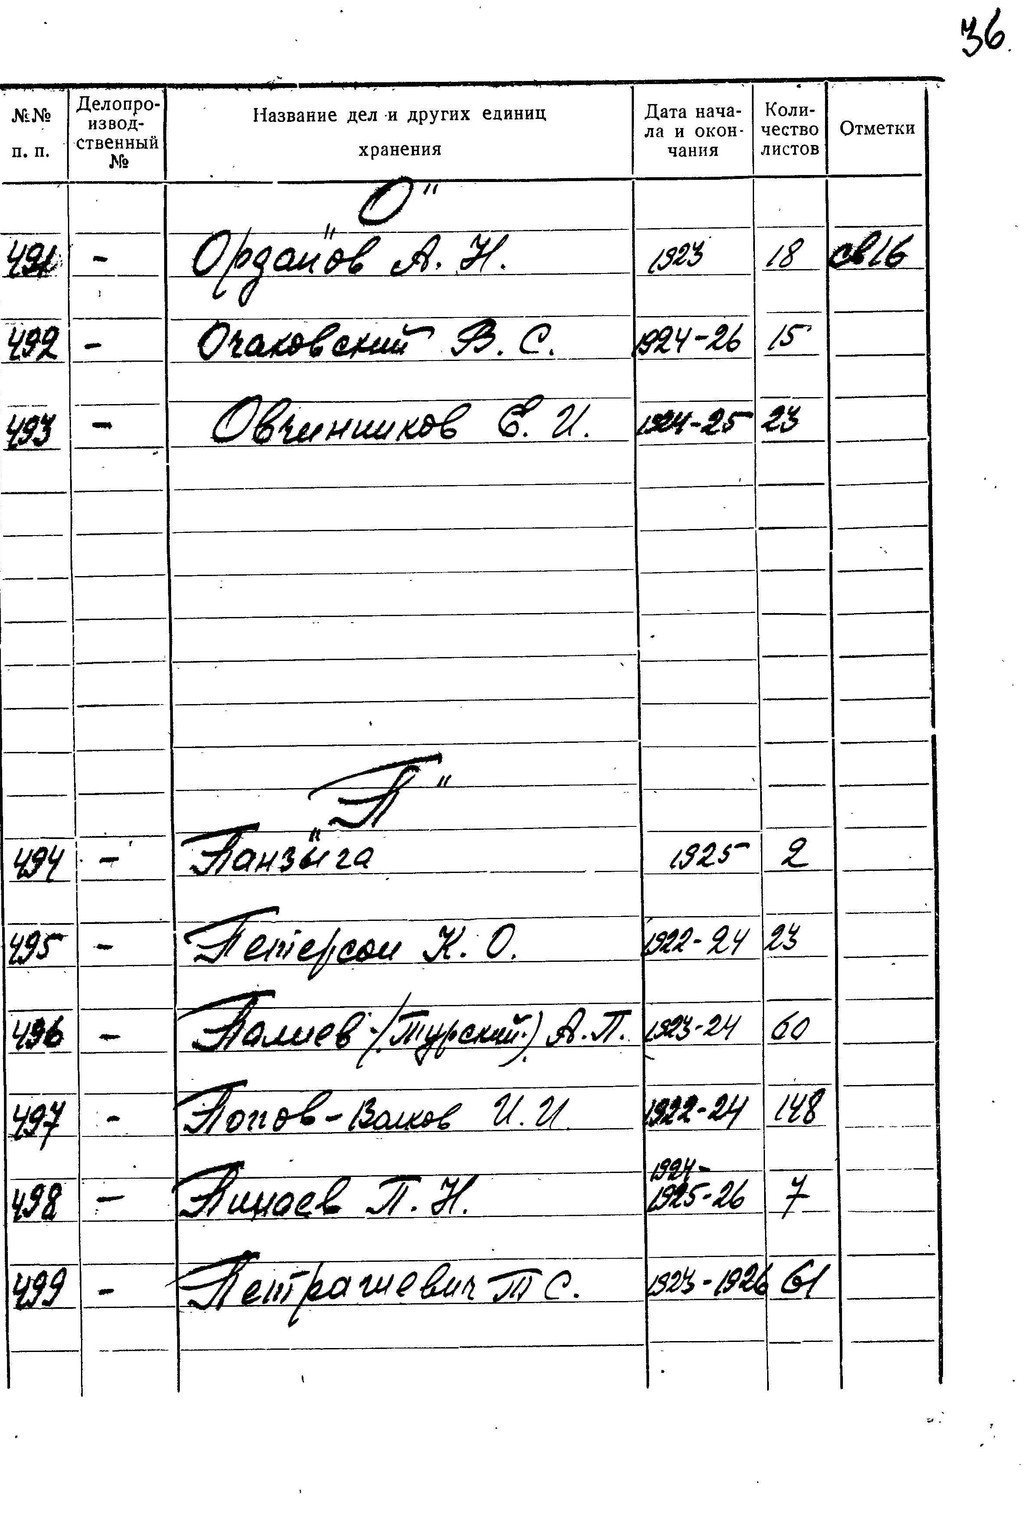 36.
№№ п. п. Делопро-извод-ственный № Название дел и других единиц хранения Дата нача-ла и окон-чания Коли-чество листов Отметки
„О"
491 - Орданов А. Н. 1923 18 св16
492 - Очаковский В. С. 1924-26 15
493 - Овчинников Е. И. 1924-25 23
„П"
494 - Панзыга 1925 2
495 - Петерсон К. О. 1922-24 23
496 - Палиев-(Турский) А. П. 1923-24 60
497 - Попов-Волков И. И. 1922-24 148
498 - Пинаев П. Н. 1924-1925-26 7
499 - Петрашевич Т С. 1923-1926 61